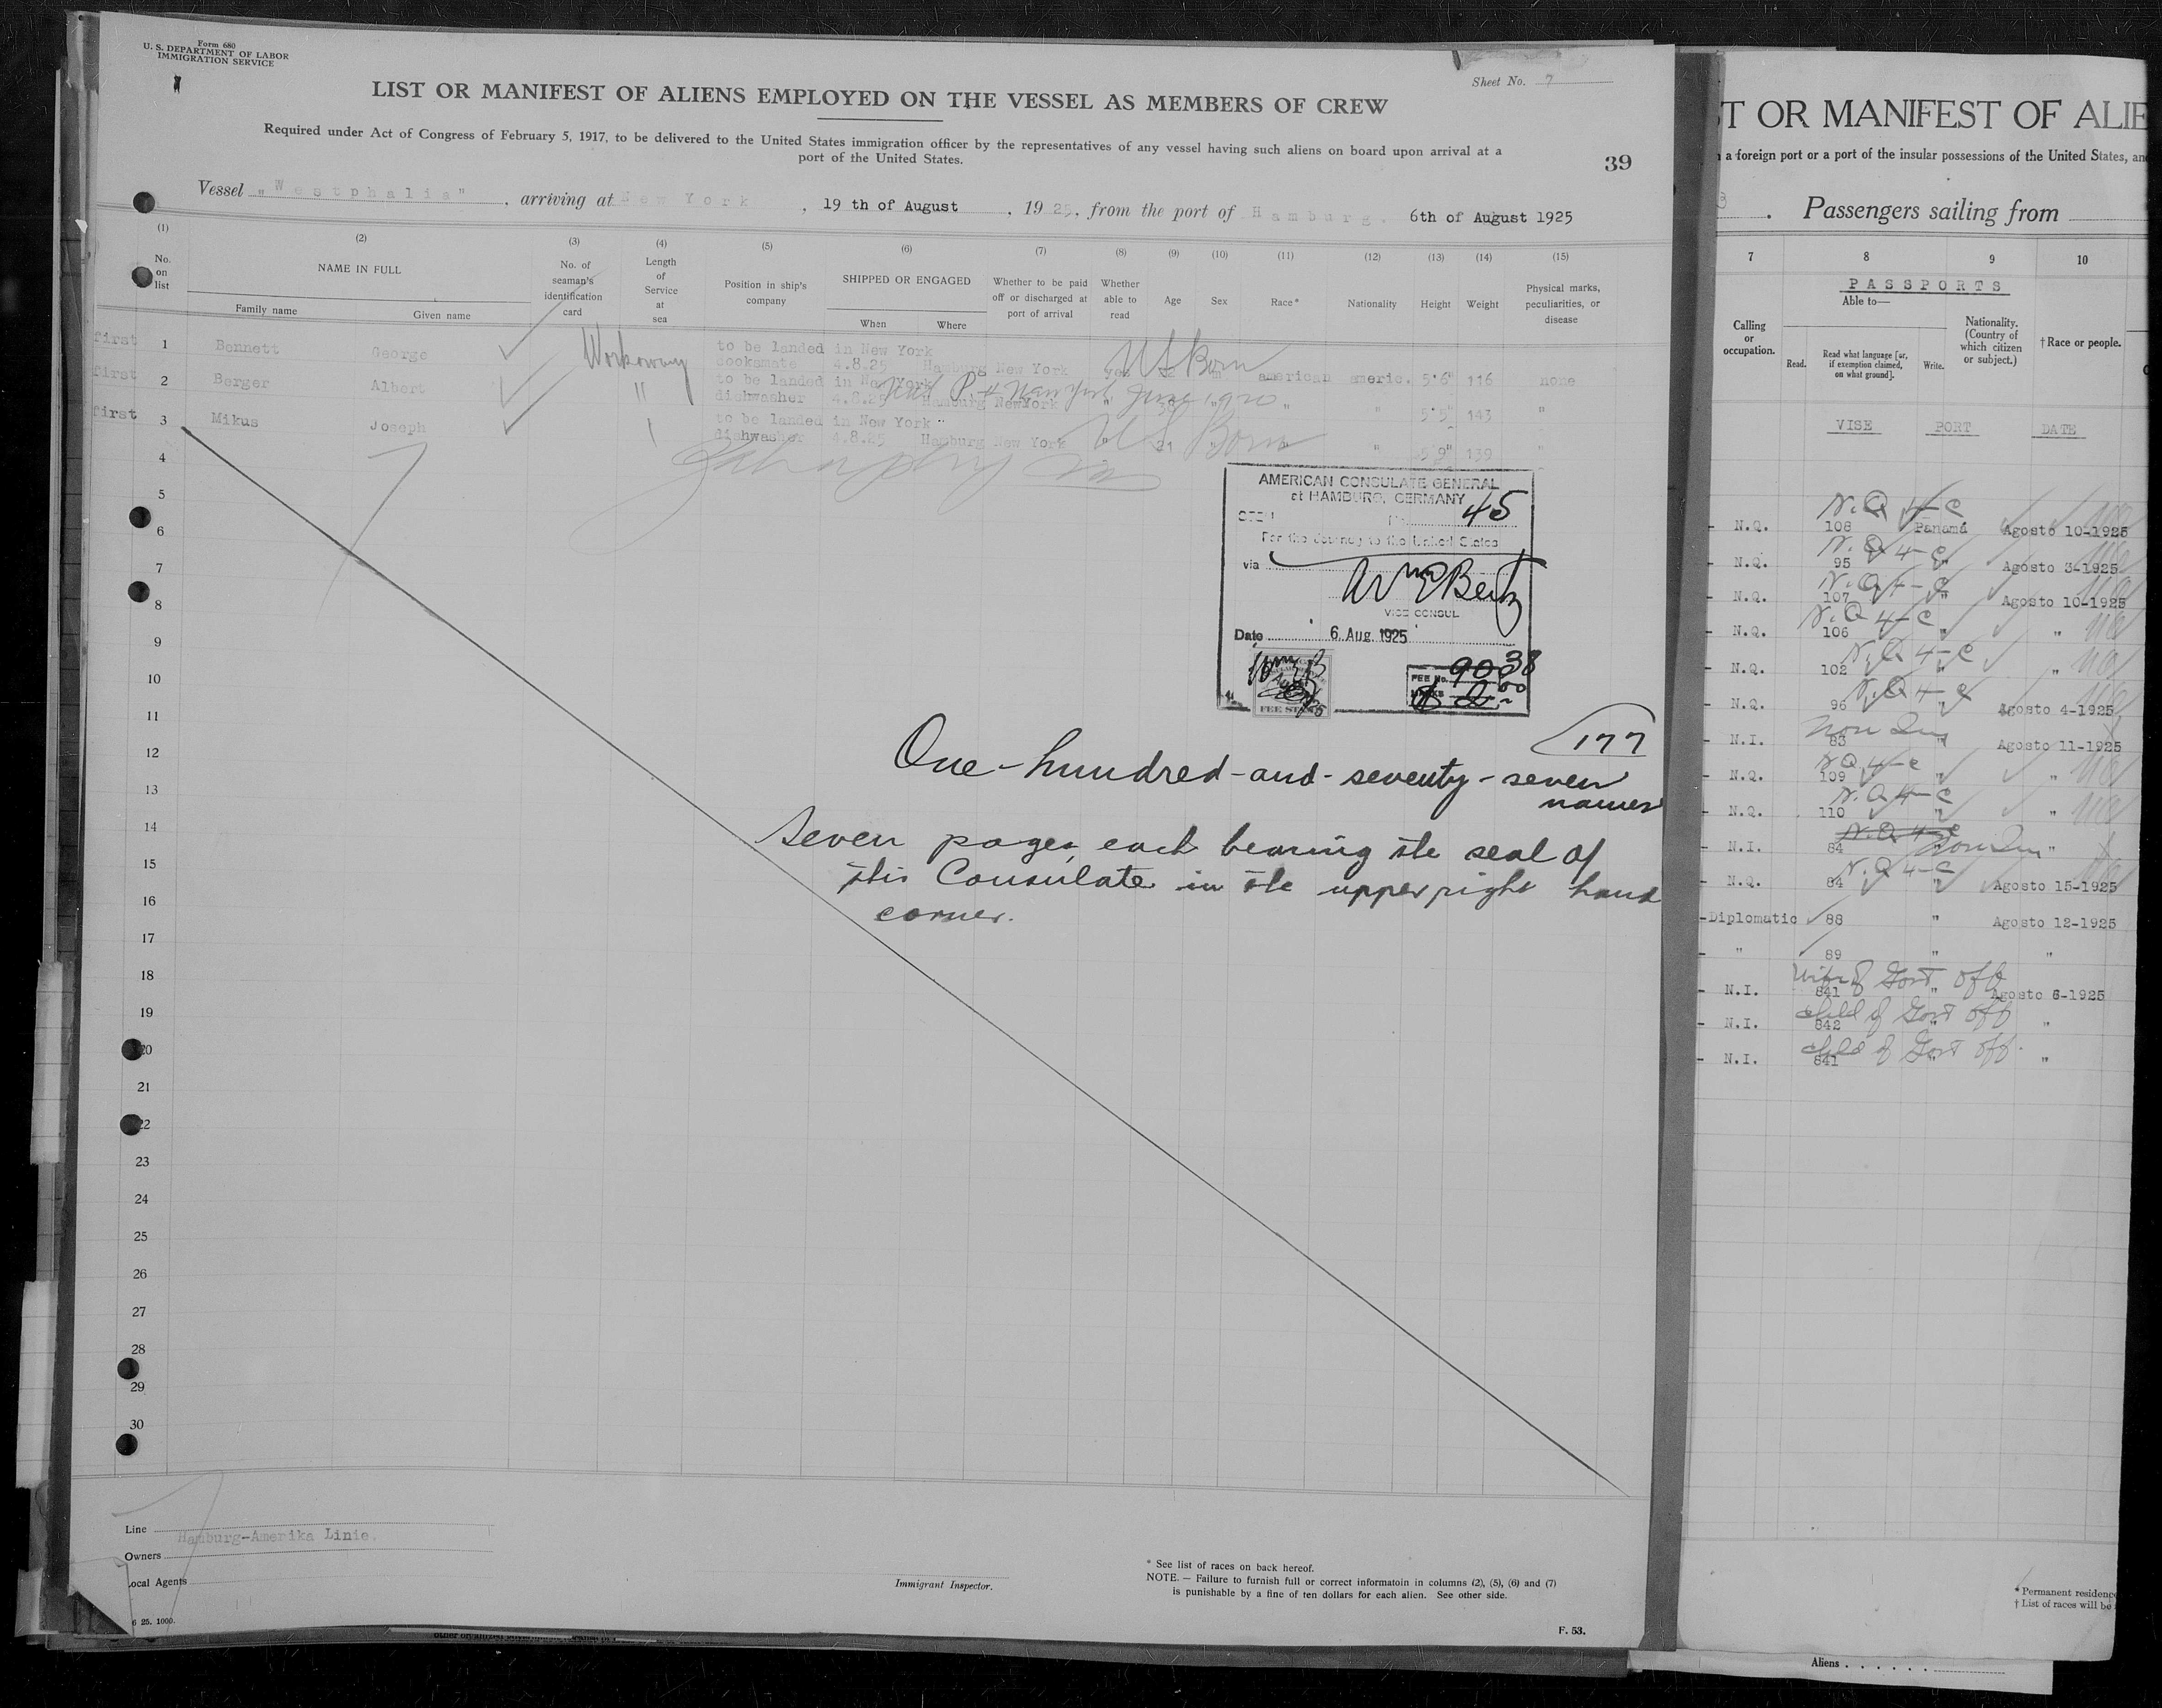 Form 680
U. S. DEPARTMENT OF LABOR
IMMIGRATION SERVICE
Sheet No. 7
LIST OR MANIFEST OF ALIENS EMPLOYED ON THE VESSEL AS MEMBERS OF CREW
Required under Act of Congress of February 5, 1917, to be delivered to the United States immigration officer by the representatives of any vessel having such aliens on board upon arrival at a
port of the United States.
39
Vessel "Westphalia", arriving at New York, 19 th of August, 1925, from the port of Hamburg. 6th of August 1925
(1) (2) (3) (4) (5) (6) (7) (8) (9) (10) (11) (12) (13) (14) (15)
No. on list
NAME IN FULL
Family name
Given name
No. of seaman's identification card
Length of Service at sea
Position in ship's company
SHIPPED OR ENGAGED
When
Where
Whether to be paid off or discharged at port of arrival
Whether able to read
Age
Sex
Race*
Nationality
Height
Weight
Physical marks, peculiarities, or disease
to be landed in New York
first 1 Bennett George Workaway cooksmate 4.8.25 Hamburg New York yes m american americ. 5'6" 116 none
US Born
to be landed in New York
first 2 Berger Albert " dishwasher 4.8.25 Hamburg NewYork " " " " 5'5" 143 "
to be landed in New York
first 3 Mikus Joseph dishwasher 4.8.25 Hamburg New York " 21 " " " 5'9" 139 "
US Born
4
5
6
7
8
9
10
11
12
13
14
15
16
17
18
19
20
21
22
23
24
25
26
27
28
29
30
AMERICAN CONSULATE GENERAL
at HAMBURG, GERMANY
No. 45
For the Journey to the United States
via
VICE CONSUL
Date 6 Aug. 1925
FEE No. 9038
FEE STAMP
177
One-hundred-and-seventy-seven
names
Seven pages, each bearing the seal of
this Consulate in the upper right hand
corner.
Line Hamburg-Amerika Linie.
Owners
Local Agents
Immigrant Inspector.
* See list of races on back hereof.
NOTE. — Failure to furnish full or correct informatoin in columns (2), (5), (6) and (7)
is punishable by a fine of ten dollars for each alien. See other side.
6 25. 1000.
F. 53.
T OR MANIFEST OF ALIE
a foreign port or a port of the insular possessions of the United States, an
Passengers sailing from
7 8 9 10
PASSPORTS
Calling or occupation.
Able to—
Read.
Read what language [or, if exemption claimed, on what ground].
Write.
Nationality. (Country of which citizen or subject.)
† Race or people.
VISE PORT DATE
N.Q. 4-C
N.Q. 108 Panamá Agosto 10-1925
N.Q. 4-C
N.Q. 95 " Agosto 3-1925
N.Q. 4-C
N.Q. 107 " Agosto 10-1925
N.Q. 4-C
N.Q. 106 " "
N.Q. 4-C
N.Q. 102 " "
N.Q. 4-C
N.Q. 96 " Agosto 4-1925
N.I. 83 " Agosto 11-1925
N.Q. 4-C
N.Q. 109 " "
N.Q. 4-C
N.Q. 110 " "
N.Q. 4-C
N.I. 84 " "
N.Q. 4-C
N.Q. 84 " Agosto 15-1925
Diplomatic 88 " Agosto 12-1925
" 89 " "
Wife of Govt off
N.I. 841 " Agosto 6-1925
child of Govt off
N.I. 842 " "
child of Govt off.
N.I. 841 " "
* Permanent residence
† List of races will be
Aliens